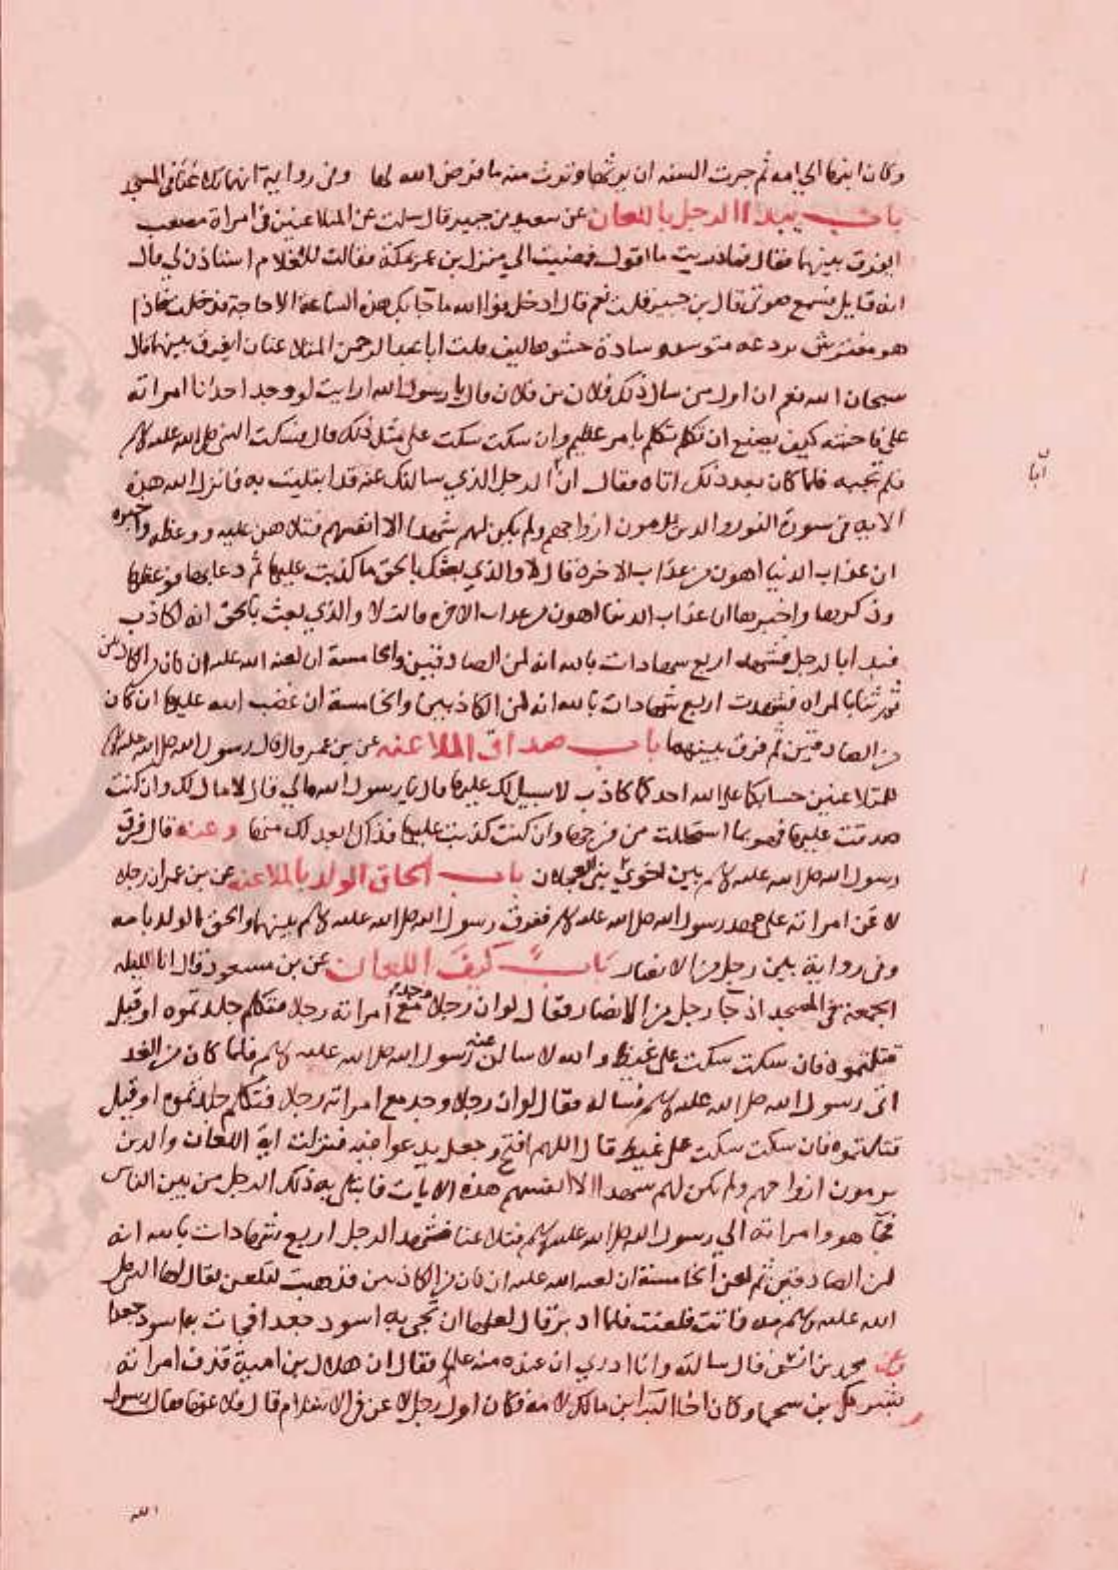 وكان ابنها الي امه ثم جرت السنه ان يرثها وترث منه ما فرض الله لها وفي رواية انهما تلاعنا في المسجد
باب يبدا الرجل باللعان عن سعيد بن جبير قال سلت عن المتلاعنين في امراة مصعب
ايفرق بينهما فقال فما دريت ما اقول فمضيت الي منزل بن عمر بمكة فقالت للغلام استاذن لي قال
انه قايل فسمع صوتي قال بن جبير قلت نعم قال ادخل فوا الله ما جابك هذه الساعة الا حاجة فدخلت فاذا
هو مفترش بردعه متوسد وسادة حشوها ليف قلت ابا عبد الرحمن المتلاعنان ايفرق بينهما قال
سبحان الله نعم ان اول من سال ذلك فلان بن فلان قال يا رسول الله ارايت لو وجد احدنا امراته
علي فاحشه كيف يصنع ان تكلم تكلم بامر عظيم وان سكت سكت علي مثل ذلك قال فسكت النبي صلى الله عليه وسلم
فلم يجبه فلما كان بعد ذلك اتاه فقال ان الرجل الذي سالتك عنه قد ابتليت به فانزل الله هذه
ابا
الايه في سورة النور والذين يرمون ازواجهم ولم يكن لهم شهدا الا انفسهم فتلاهن عليه ووعظه واخبره
ان عذاب الدنيا اهون من عذاب الاخرة قال لا والذي بعثك بالحق ما كذبت عليها ثم دعا بها فوعظها
وذكرها واخبرها ان عذاب الدنيا اهون من عذاب الاخره قالت لا والذي بعث بالحق انه لكاذب
فبدا بالرجل فشهد اربع شهادات بالله انه لمن الصادقين والخامسة ان لعنه الله عليه ان كان من الكاذبين
ثم ثنا بالمراه فشهدت اربع شهادات بالله انه لمن الكاذبين والخامسة ان غضب الله عليها ان كان
من الصادقين ثم فرق بينهما باب صداق الملاعنه عن بن عمر قال قال رسول الله صلى الله عليه وسلم
للمتلاعنين حسابكما علي الله احدكما كاذب لا سبيل لك عليها قال يا رسول الله مالي قال لا مال لك وان كنت
صدقت عليها فهو بما استحللت من فرجها وان كنت كذبت عليها فذاك ابعد لك منها وعنه قال فرق
رسول الله صلى الله عليه وسلم بين اخوي بني العجلان باب الحاق الولد بالملاعنه عن بن عمر ان رجلا
لاعن امراته علي عهد رسول الله صلى الله عليه وسلم ففرق رسول الله صلى الله عليه وسلم بينهما والحق الولد بامه
وفي رواية بين رجل من الانصار باب كيف اللعان عن بن مسعود قال انا لليله
الجمعة في المسجد اذ جا رجل من الانصار فقال لو ان رجلا وجد مع امراته رجلا فتكلم جلدتموه او قتل
قتلتموه فان سكت سكت علي غيظ والله لاسالن عنه رسول الله صلى الله عليه وسلم فلما كان من الغد
اتي رسول الله صلى الله عليه وسلم فساله فقال لو ان رجلا وجد مع امراته رجلا فتكلم جلدتموه او قتل
قتلتموه فان سكت سكت علي غيظ قال اللهم افتح وجعل يدعوا فنزلت اية اللعان والذين
يرمون ازواجهم ولم يكن لهم شهدا الا انفسهم هذه الايات فابتلي به ذلك الرجل من بين الناس
فجا هو وامراته الي رسول الله صلى الله عليه وسلم فتلاعنا فشهد الرجل اربع شهادات بالله انه
لمن الصادقين ثم لعن الخامسة ان لعنه الله عليه ان كان من الكاذبين فذهبت لتلعن فقال لها النبي صلى
الله عليه وسلم مه فابت فلعنت فلما ادبر قال لعلها ان تجي به اسود جعدا فجات به اسود جعدا
وعن محمد بن انس قال سالته وانا ادري ان عنده منه علما فقال ان هلال بن امية قذف امراته
بشريك بن سحما وكان اخا البرا بن مالك لامه فكان اول رجل لاعن في الاسلام قال فلاعنها فقال رسول
الله